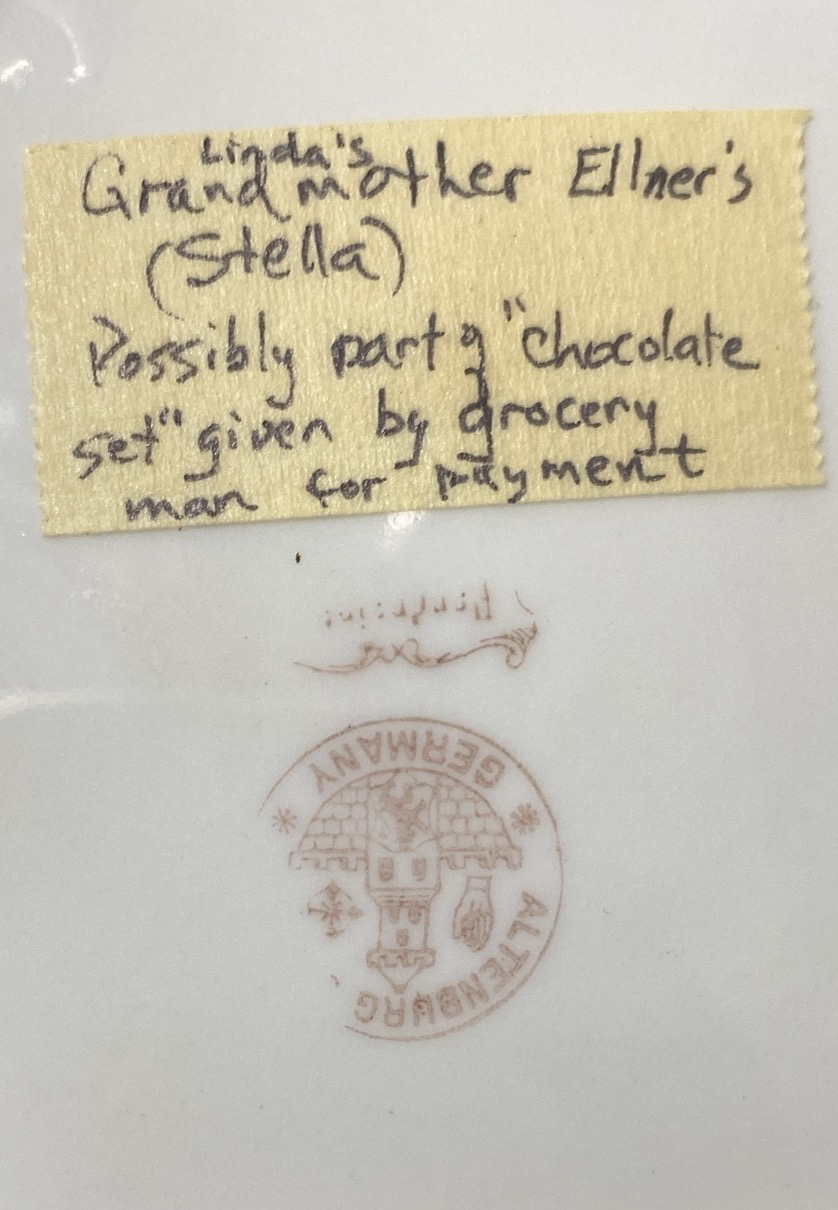 Linda's
Grandmother Ellner's
(Stella)
Possibly part of "chocolate
set" given by grocery
man for payment
ALTENBURG
GERMANY